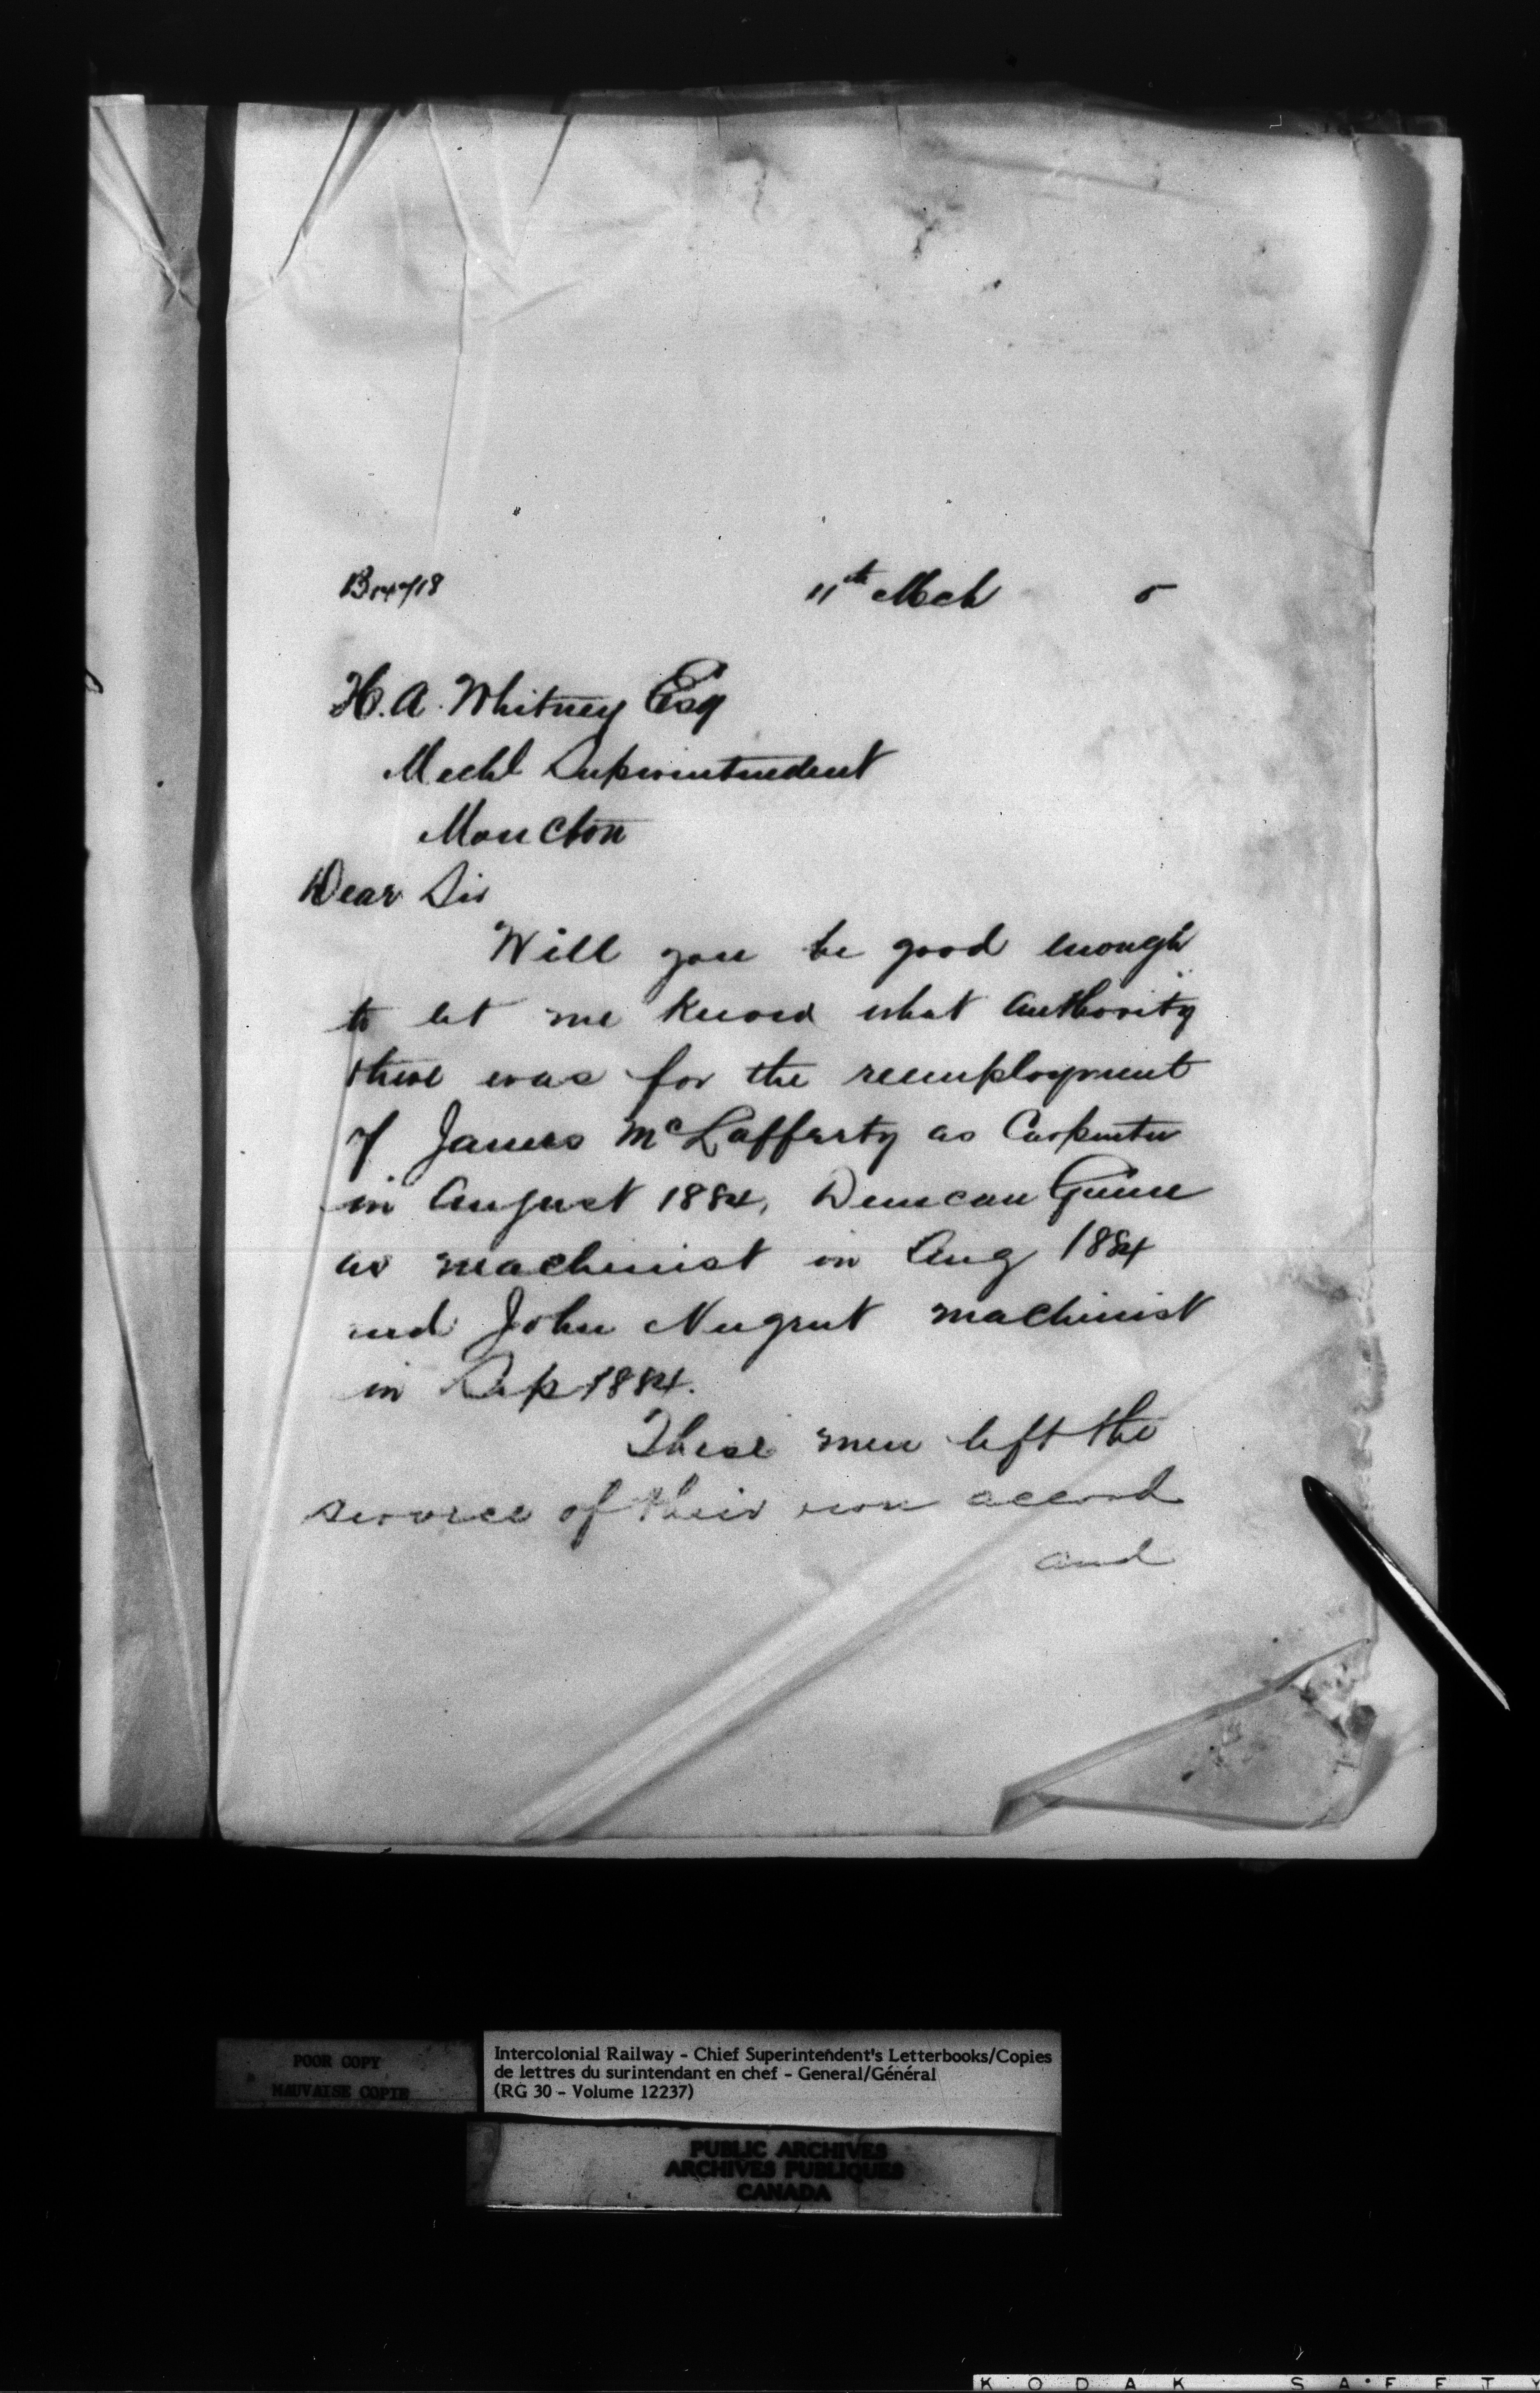 11th Mch 5
H. A. Whitney Esq
Mechl Superintendent
Moncton
Dear Sir
Will you be good enough
to let me know what authority
there was for the reemployment
of James McLafferty as Carpenter
in August 1884, Duncan Gunn
as machinist in Aug 1884
and John Nugent machinist
in Sep 1884.
These men left the
service of their own accord
and
POOR COPY
MAUVAISE COPIE
Intercolonial Railway - Chief Superintendent's Letterbooks/Copies
de lettres du surintendant en chef - General/Général
(RG 30 - Volume 12237)
PUBLIC ARCHIVES
ARCHIVES PUBLIQUES
CANADA
KODAK SAFETY